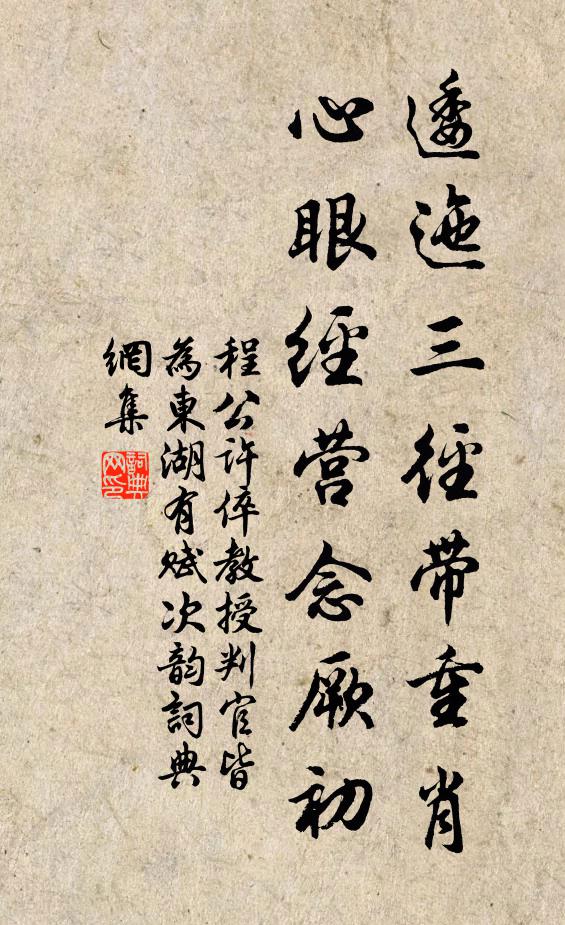 逶迤三徑带重肖
心眼經营念厥初
程公許倅教授判官皆
為東湖有賦次韵詞典
網集
詞典
网印